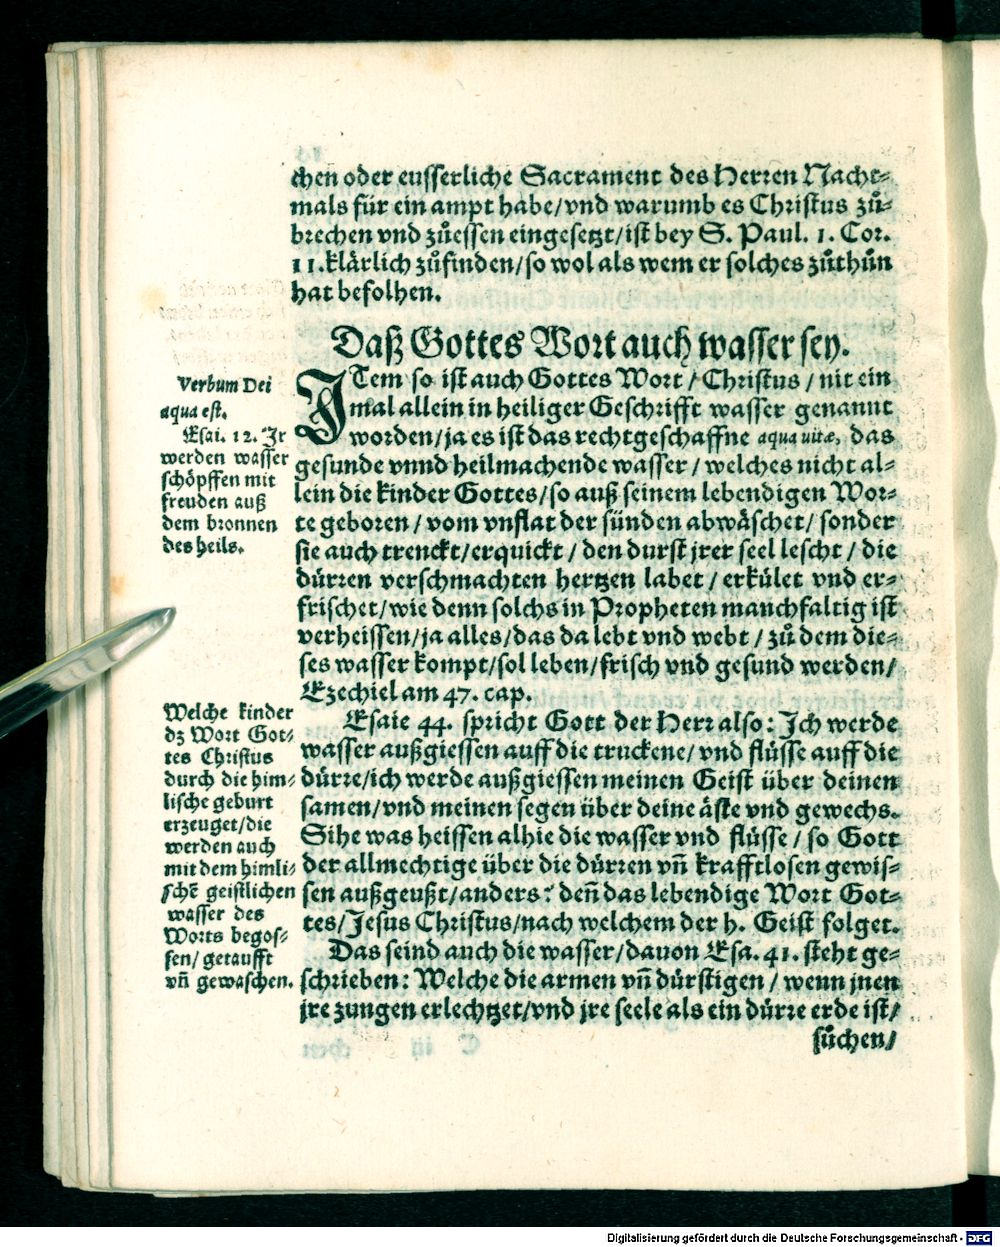 chen oder eusserliche Sacrament des Herren Nacht-
mals für ein ampt habe/vnd warumb es Christus zů-
brechen vnd zůessen eingesetzt/ist bey S. Paul. 1. Cor.
11.klärlich zůfinden/so wol als wem er solches zůthůn
hat befolhen.
Daß Gottes Wort auch wasser sey.
Verbum Dei
aqua est.
Esai. 12. Ir
werden wasser
schöpffen mit
freuden auß
dem bronnen
des heils.
ITem so ist auch Gottes Wort/Christus/nit ein
mal allein in heiliger Geschrifft wasser genannt
worden/ja es ist das rechtgeschaffne aqua uitæ, das
gesunde vnnd heilmachende wasser/welches nicht al-
lein die kinder Gottes/so auß seinem lebendigen Wor-
te geboren/vom vnflat der sünden abwäschet/sonder
sie auch trenckt/erquickt/den durst jrer seel lescht/die
dürren verschmachten hertzen labet/erkület vnd er-
frischet/wie denn solchs in Propheten manchfaltig ist
verheissen/ja alles/das da lebt vnd webt/zů dem die-
ses wasser kompt/sol leben/frisch vnd gesund werden/
Ezechiel am 47. cap.
Welche kinder
dz Wort Got-
tes Christus
durch die him-
lische geburt
erzeuget/die
werden auch
mit dem himli-
schẽ geistlichen
wasser des
Worts begos-
sen/getaufft
vñ gewaschen.
Esaie 44. spricht Gott der Herr also: Ich werde
wasser außgiessen auff die truckene/vnd flüsse auff die
dürre/ich werde außgiessen meinen Geist über deinen
samen/vnd meinen segen über deine äste vnd gewechs.
Sihe was heissen alhie die wasser vnd flüsse/so Gott
der allmechtige über die dürren vñ krafftlosen gewis-
sen außgeußt/anders? deñ das lebendige Wort Got-
tes/Jesus Christus/nach welchem der h. Geist folget.
Das seind auch die wasser/dauon Esa. 41. steht ge-
schrieben: Welche die armen vñ dürstigen/wenn jnen
jre zungen erlechtzet/vnd jre seele als ein dürre erde ist/
sůchen/
Digitalisierung gefördert durch die Deutsche Forschungsgemeinschaft - DFG